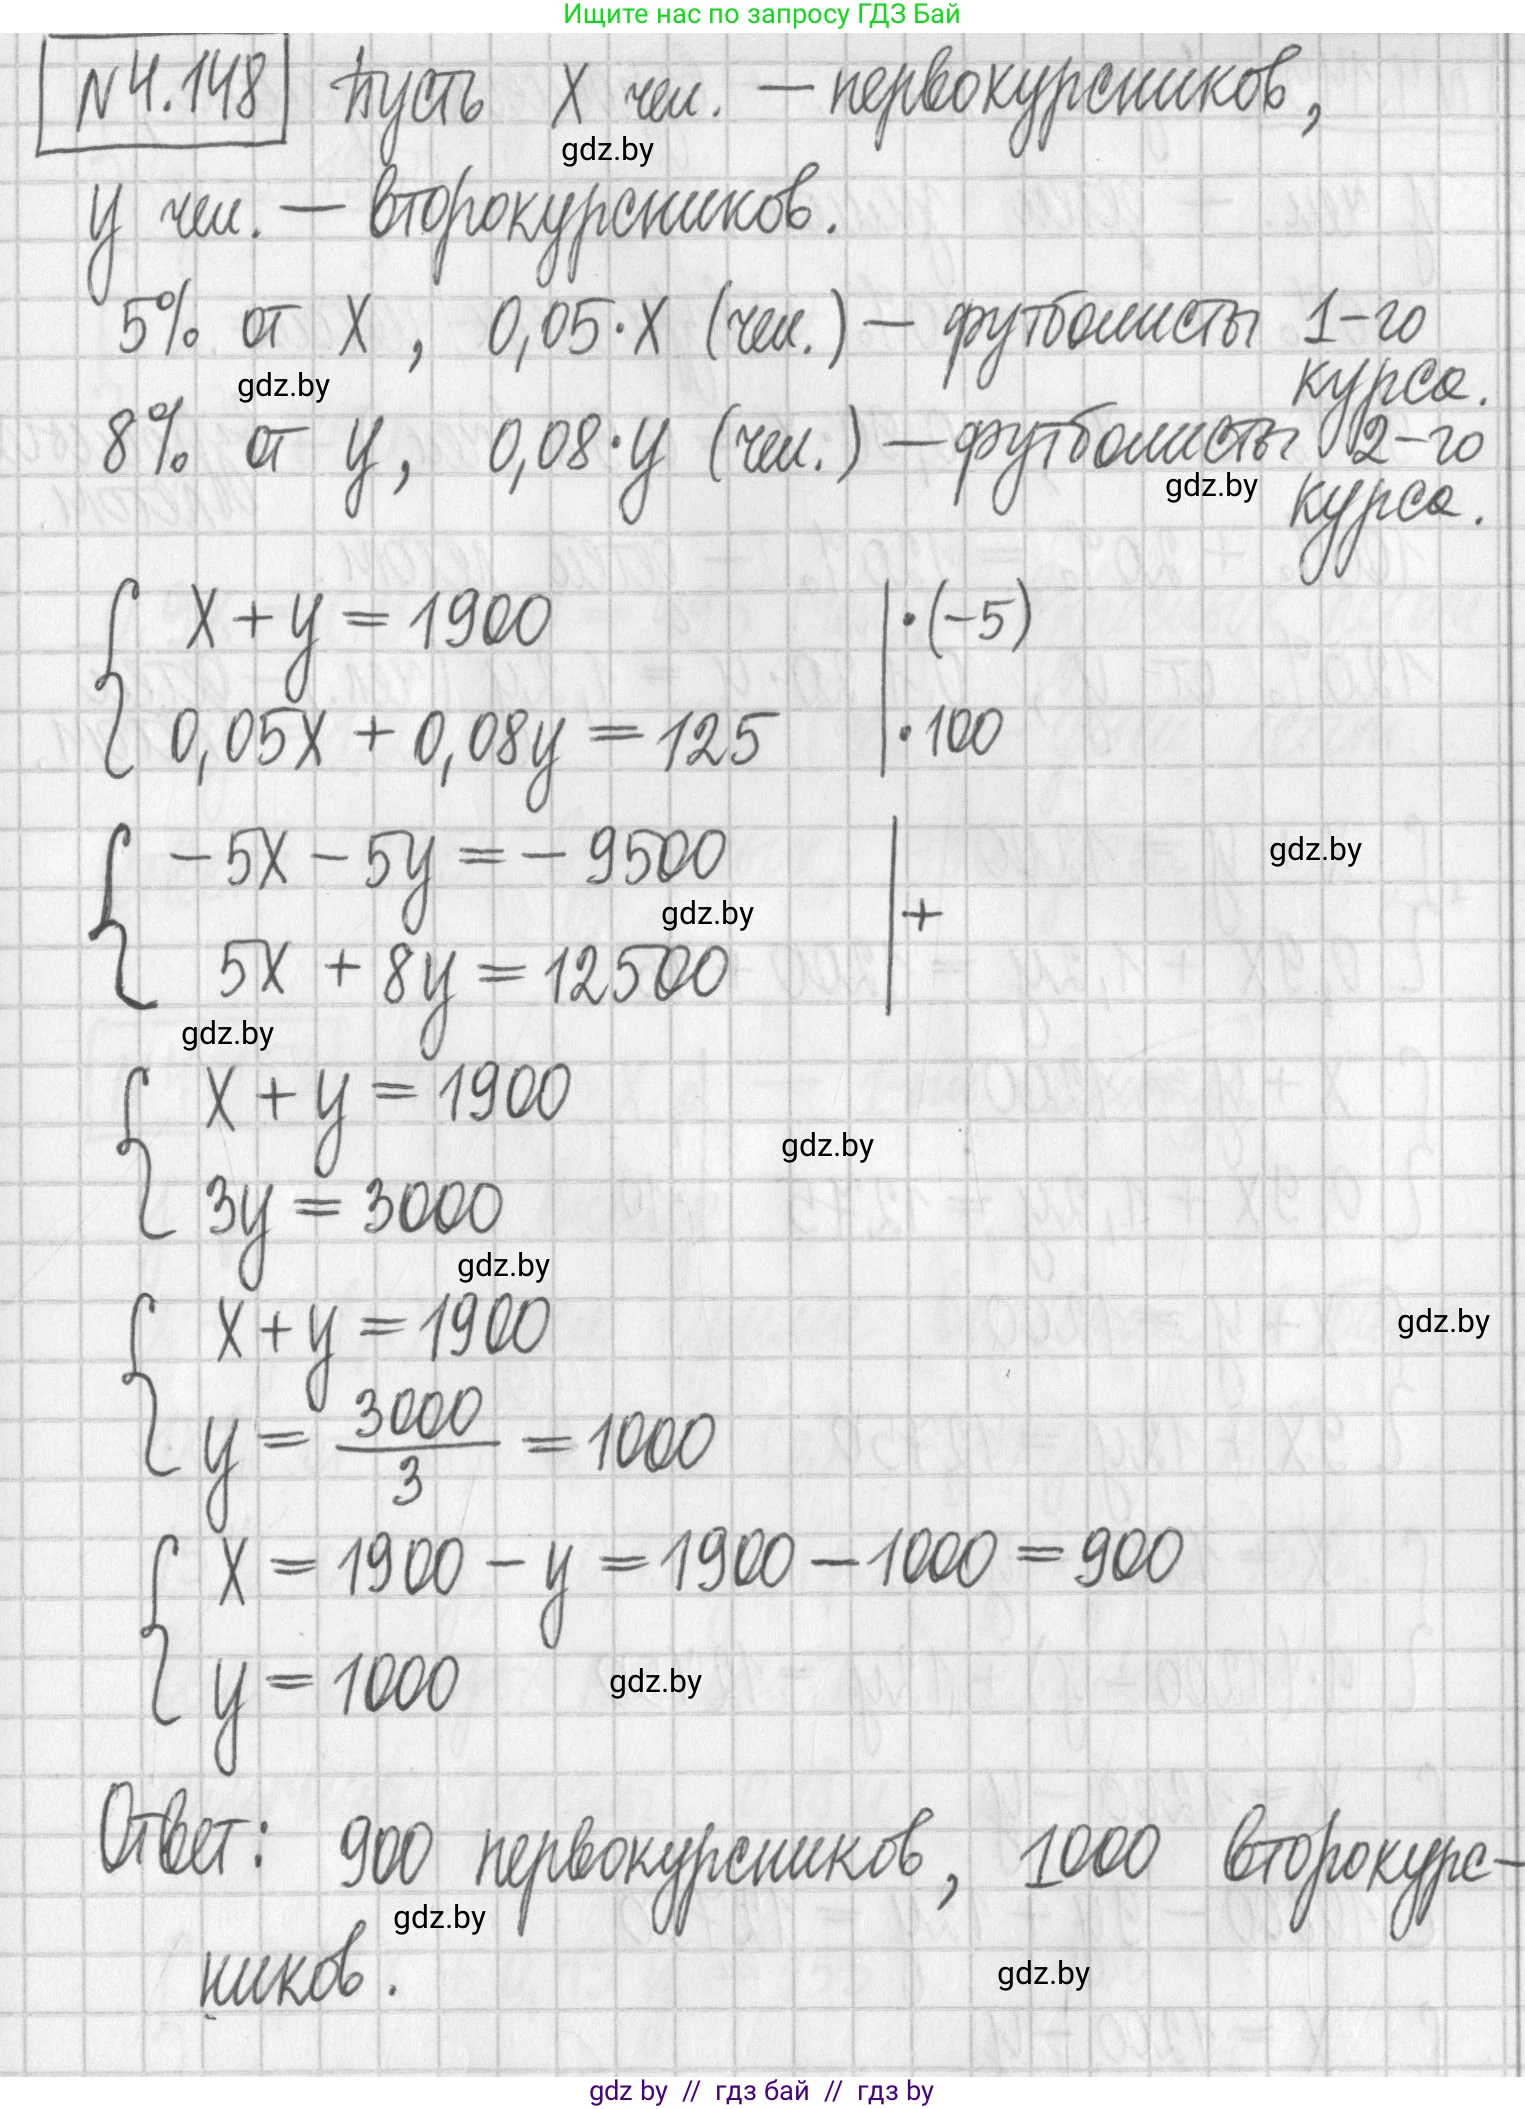 Ищите нас по запросу ГДЗ Бай
N4.148 Пусть x чел. — первокурсников,
gdz.by
y чел. — второкурсников.
5% от x, 0,05·x (чел.) — футболисты 1-го
курса.
gdz.by
8% от y, 0,08·y (чел.) — футболисты 2-го
курса.
gdz.by
x + y = 1900 | ·(-5)
0,05x + 0,08y = 125 | ·100
-5x - 5y = -9500
gdz.by
gdz.by
| +
5x + 8y = 12500
gdz.by
x + y = 1900
gdz.by
3y = 3000
gdz.by
x + y = 1900
gdz.by
y = 3000/3 = 1000
x = 1900 - y = 1900 - 1000 = 900
y = 1000
gdz.by
Ответ: 900 первокурсников, 1000 второкурс-
gdz.by
ников.
gdz.by
gdz by // гдз бай // гдз by